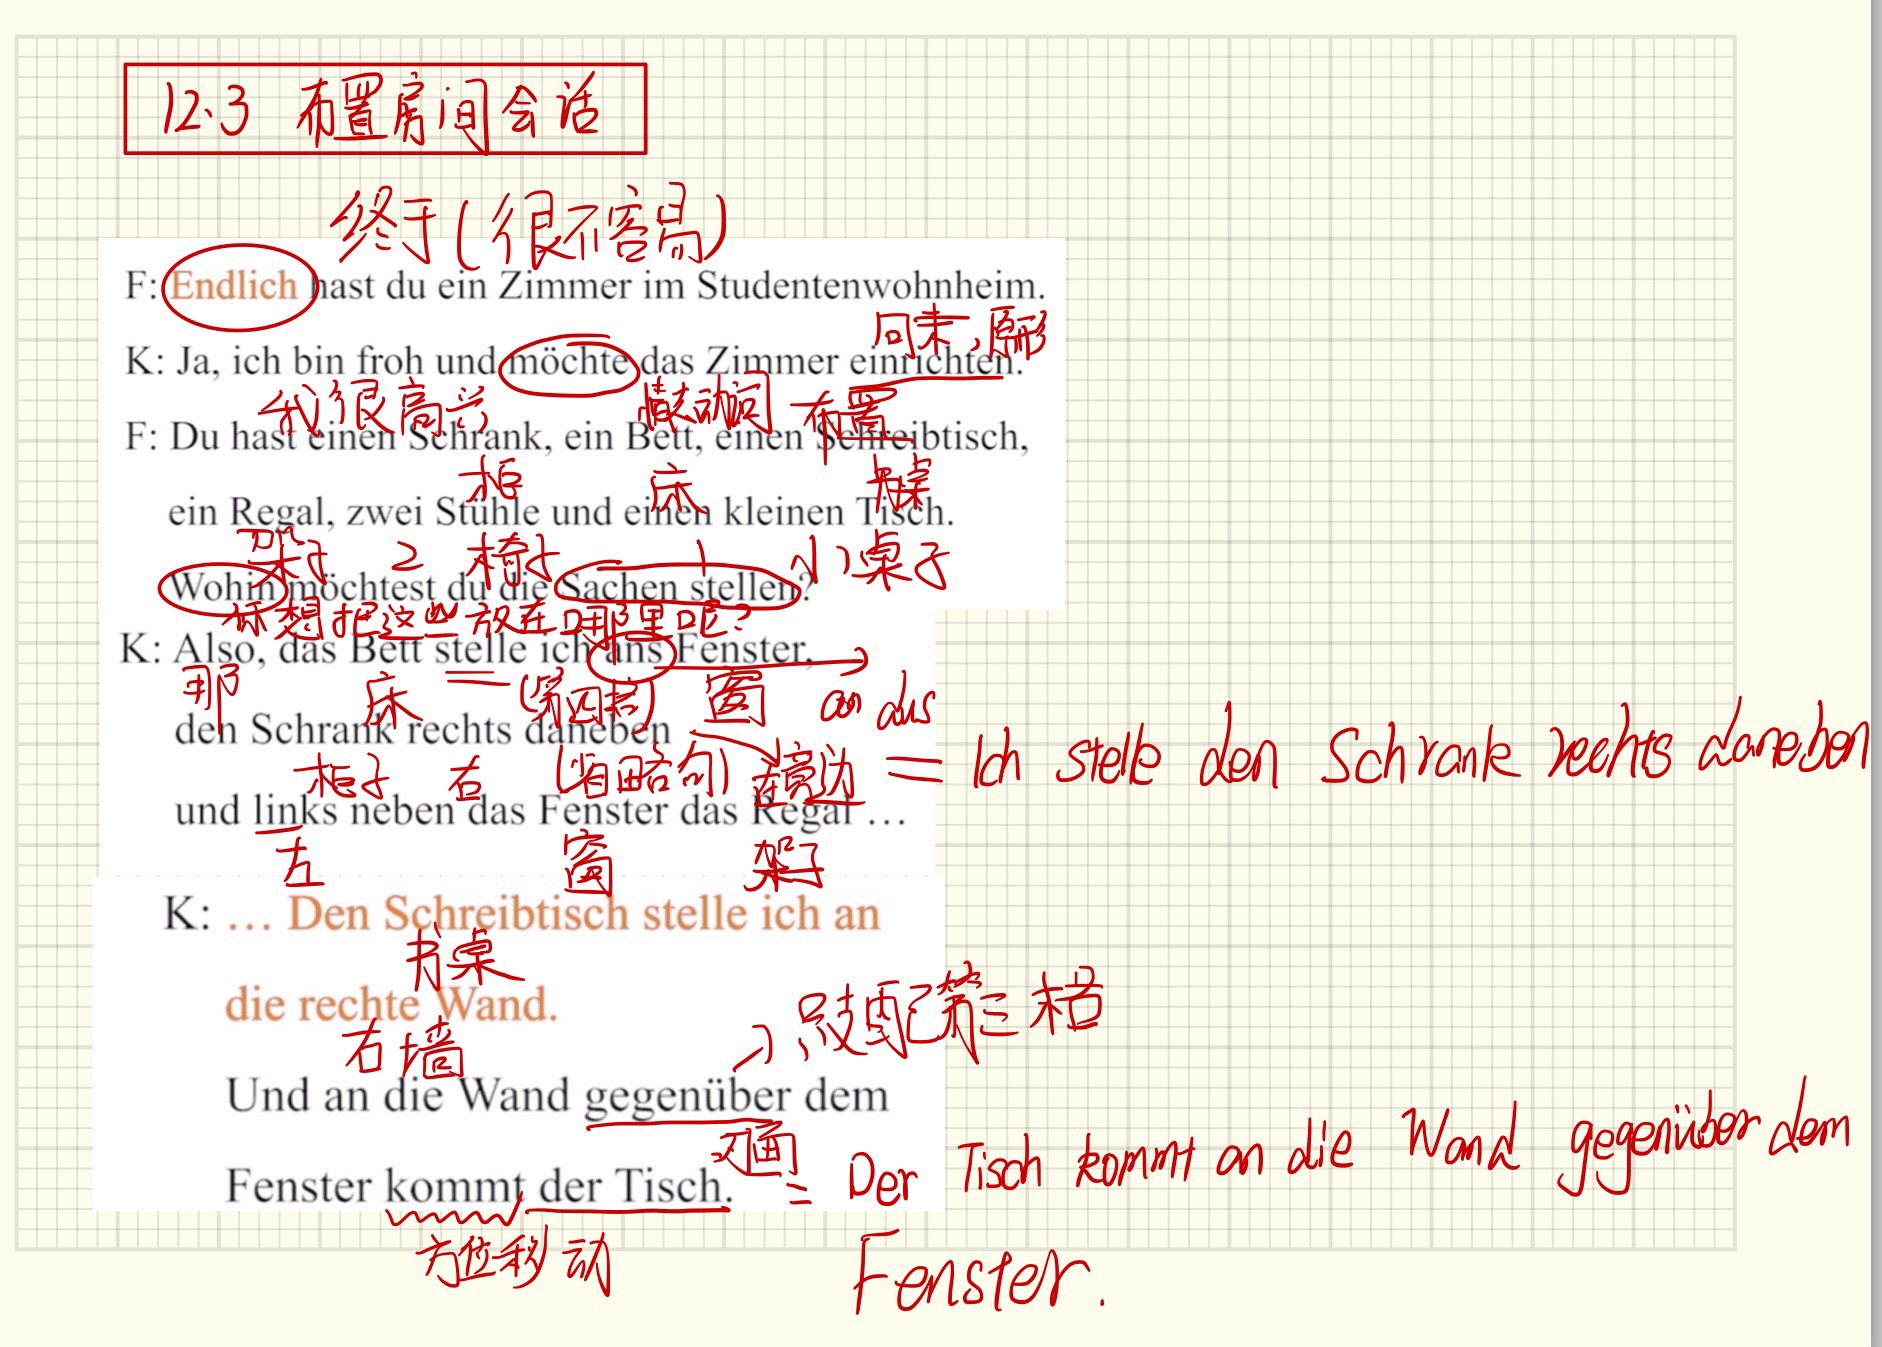 12.3 布置房间会话
终于(很不容易)
F: Endlich hast du ein Zimmer im Studentenwohnheim.
回末,原形
K: Ja, ich bin froh und möchte das Zimmer einrichten.
我很高兴 情态动词 布置
F: Du hast einen Schrank, ein Bett, einen Schreibtisch,
柜 床 书桌
ein Regal, zwei Stühle und einen kleinen Tisch.
架子 2 椅子 1 小桌子
Wohin möchtest du die Sachen stellen?
你想把这些放在哪里呢?
K: Also, das Bett stelle ich ans Fenster,
那 床 (第四格) 窗 an das
den Schrank rechts daneben
柜子 右 (省略句) 在旁边 = Ich stelle den Schrank rechts daneben
und links neben das Fenster das Regal …
左 窗 架子
K: … Den Schreibtisch stelle ich an
书桌
die rechte Wand.
右墙 只支配第三格
Und an die Wand gegenüber dem
对面
Fenster kommt der Tisch. = Der Tisch kommt an die Wand gegenüber dem
方位移动 Fenster.